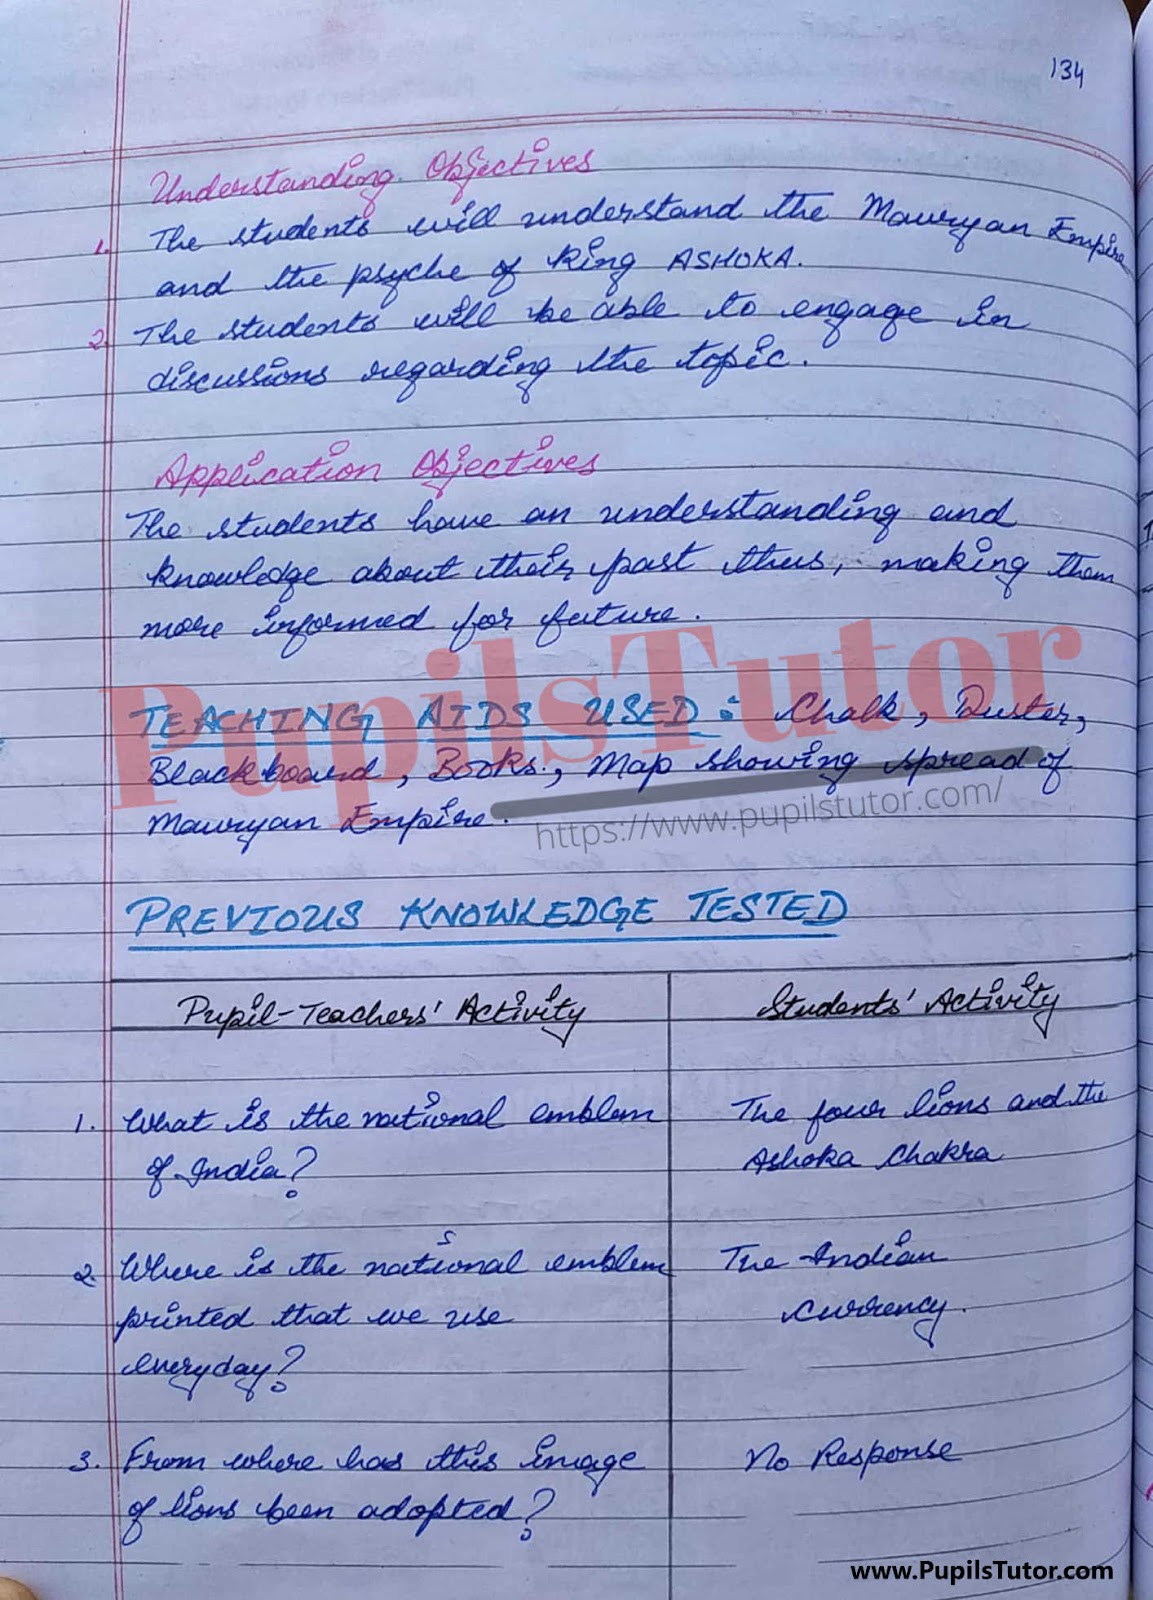 134
Understanding Objectives
1. The students will understand the Mauryan Empire
and the psyche of King ASHOKA.
2. The students will be able to engage in
discussions regarding the topic.
Application Objectives
The students have an understanding and
knowledge about their past thus, making them
more informed for future.
PupilsTutor
TEACHING AIDS USED : Chalk, Duster,
Blackboard, Books, Map showing spread of
Mauryan Empire.
https://www.pupilstutor.com/
PREVIOUS KNOWLEDGE TESTED
Pupil-Teachers' Activity Students' Activity
1. What is the national emblem The four lions and the
of India? Ashoka Chakra
2. Where is the national emblem The Indian
printed that we use currency.
everyday?
3. From where has this image No Response
of lions been adopted?
www.PupilsTutor.com